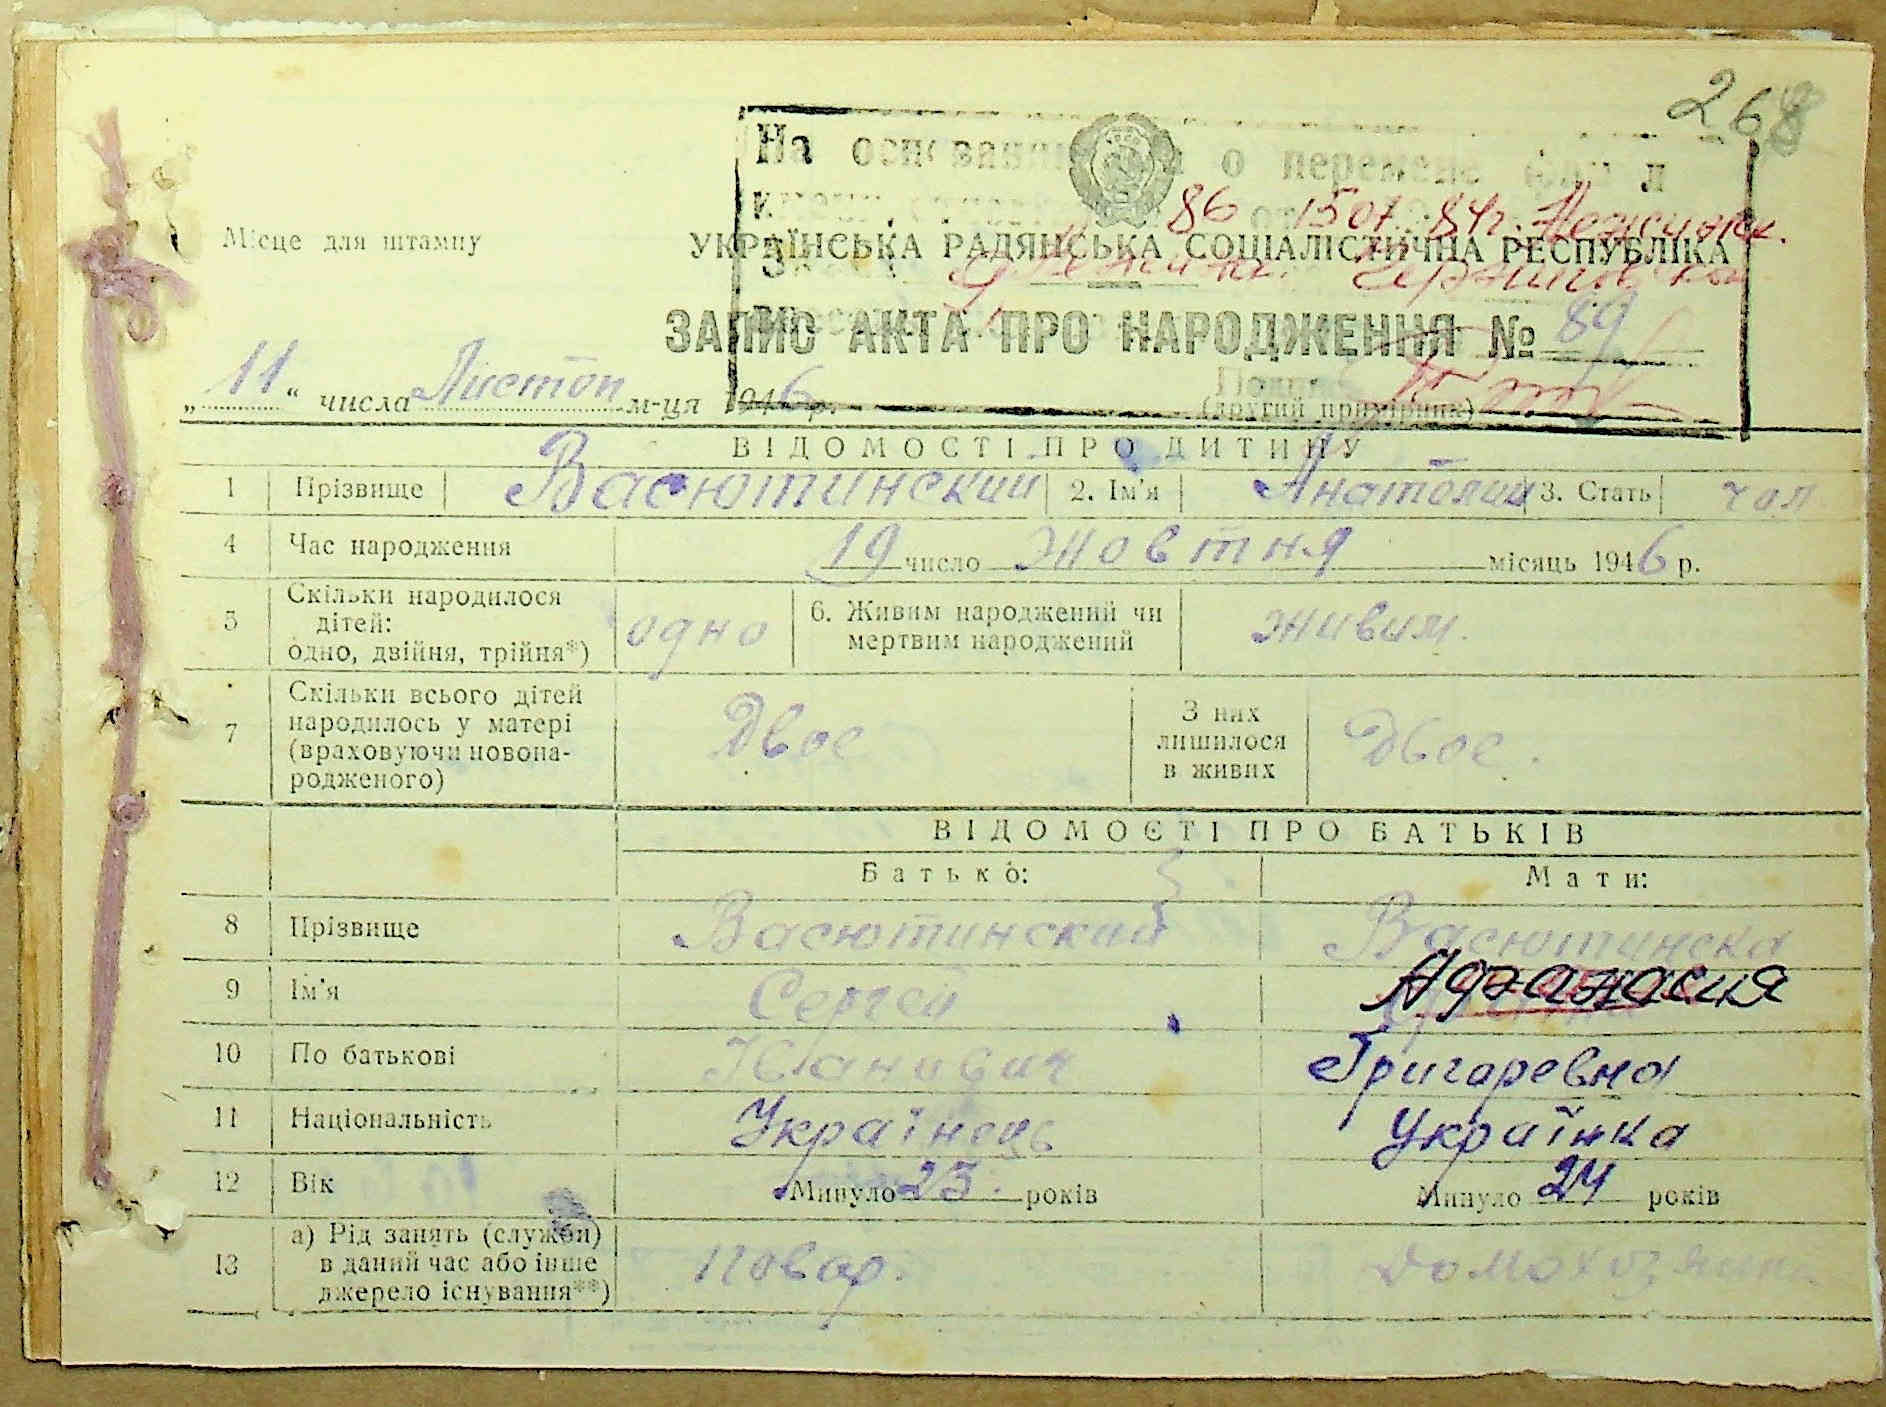 268
На основании о перемене
86 от 15 07. 84г. Нежинск.
Місце для штампу
УКРАЇНСЬКА РАДЯНСЬКА СОЦІАЛІСТИЧНА РЕСПУБЛІКА
ЗАПИС АКТА ПРО НАРОДЖЕННЯ № 89
„11“ числа Листоп м-ця 1946 р.
(другий примірник)
ВІДОМОСТІ ПРО ДИТИНУ
1 Прізвище Васютинский 2. Ім'я Анатолий 3. Стать чол
4 Час народження 19 число Жовтня місяць 1946 р.
5 Скільки народилося дітей: одно, двійня, трійня*) одно 6. Живим народжений чи мертвим народжений живим.
7 Скільки всього дітей народилось у матері (враховуючи новонародженого) Двое З них лишилося в живих Двое.
ВІДОМОСТІ ПРО БАТЬКІВ
Батько: Мати:
8 Прізвище Васютинский Васютинска
9 Ім'я Сергей Афанасия
10 По батькові Иванович Григаревна
11 Національність Українець Українка
12 Вік Минуло 23 років Минуло 24 років
13 а) Рід занять (служби) в даний час або інше джерело існування**) Повар. Домохозяика